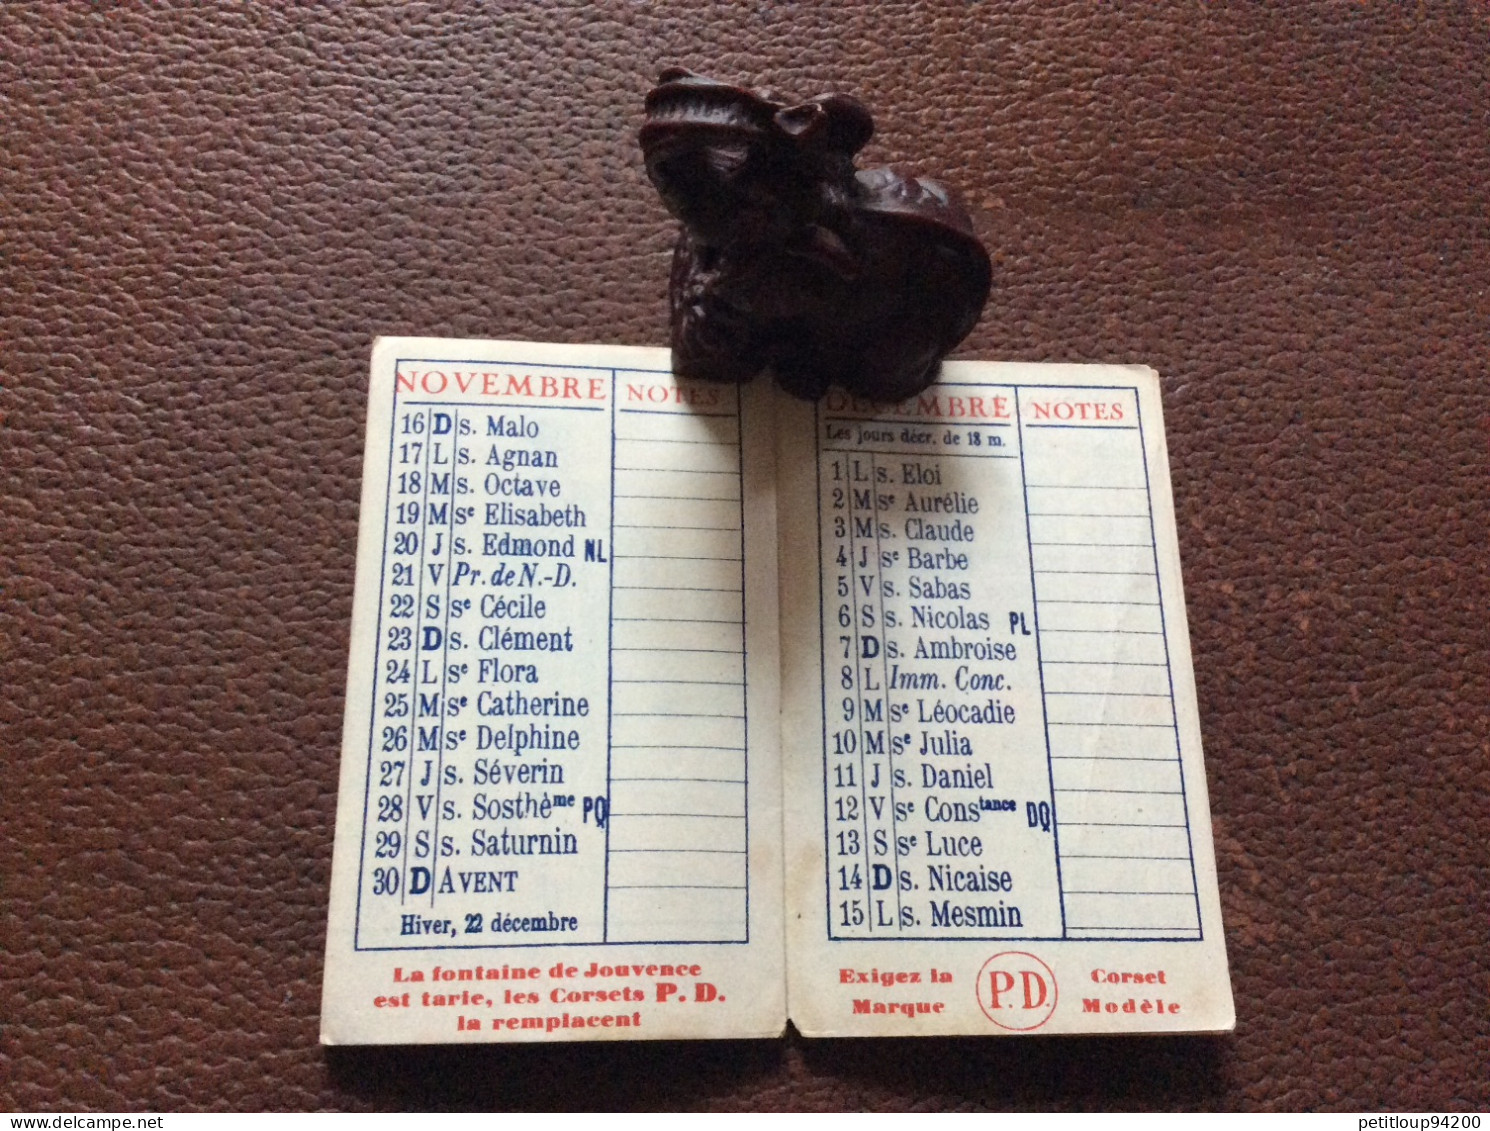 NOVEMBRE NOTES
16 D s. Malo
17 L s. Agnan
18 M s. Octave
19 M sᵉ Elisabeth
20 J s. Edmond NL
21 V Pr. de N.-D.
22 S sᵉ Cécile
23 D s. Clément
24 L sᵉ Flora
25 M sᵉ Catherine
26 M sᵉ Delphine
27 J s. Séverin
28 V s. Sosthèᵐᵉ PQ
29 S s. Saturnin
30 D AVENT
Hiver, 22 décembre
La fontaine de Jouvence
est tarie, les Corsets P. D.
la remplacent
DECEMBRE NOTES
Les jours décr. de 18 m.
1 L s. Eloi
2 M sᵉ Aurélie
3 M s. Claude
4 J sᵉ Barbe
5 V s. Sabas
6 S s. Nicolas PL
7 D s. Ambroise
8 L Imm. Conc.
9 M sᵉ Léocadie
10 M sᵉ Julia
11 J s. Daniel
12 V sᵉ Constance DQ
13 S sᵉ Luce
14 D s. Nicaise
15 L s. Mesmin
Exigez la
Marque
P.D.
Corset
Modèle
petitloup94200